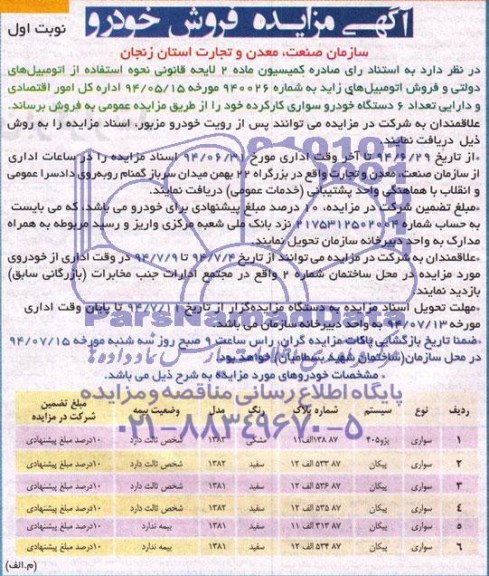 آگهی مزایده فروش خودرو
نوبت اول
سازمان صنعت، معدن و تجارت استان زنجان
در نظر دارد به استناد رای صادره کمیسیون ماده ۲ لایحه قانونی نحوه استفاده از اتومبیل‌های
دولتی و فروش اتومبیل‌های زاید به شماره ۹۴۰۰۲۶ مورخه ۹۴/۰۵/۱۵ اداره کل امور اقتصادی
و دارایی تعداد ۶ دستگاه خودرو سواری کارکرده خود را از طریق مزایده عمومی به فروش برساند.
علاقمندان به شرکت در مزایده می توانند پس از رویت خودرو مزبور، اسناد مزایده را به روش
ذیل دریافت نمایند.
•از تاریخ ۹۴/۶/۲۹ تا آخر وقت اداری مورخ ۹۴/۰۶/۳۱ اسناد مزایده را در ساعات اداری
از سازمان صنعت، معدن و تجارت واقع در بزرگراه ۲۲ بهمن میدان سرباز گمنام روبه‌روی دادسرا عمومی
و انقلاب با هماهنگی واحد پشتیبانی (خدمات عمومی) دریافت نمایند.
•مبلغ تضمین شرکت در مزایده، ۱۰ درصد مبلغ پیشنهادی برای خودرو می باشد، که می بایست
به حساب شماره ۲۱۷۵۳۱۲۵۰۲۰۰۴ نزد بانک ملی شعبه مرکزی واریز و رسید مربوطه به همراه
مدارک به واحد دبیرخانه سازمان تحویل نمایند.
•علاقمندان به شرکت در مزایده می توانند از تاریخ ۹۴/۷/۴ تا ۹۴/۷/۹ در وقت اداری از خودروی
مورد مزایده در محل ساختمان شماره ۲ واقع در مجتمع ادارات جنب مخابرات (بازرگانی سابق)
بازدید نمایند.
•مهلت تحویل اسناد مزایده به دستگاه مزایده‌گزار از تاریخ ۹۴/۷/۱۱ تا پایان وقت اداری
مورخه ۹۴/۰۷/۱۳ به واحد دبیرخانه سازمان می باشد.
•ضمنا تاریخ بازگشایی پاکات مزایده گران راس ساعت ۹ صبح روز سه شنبه مورخه ۹۴/۰۷/۱۵
در محل سازمان (ساختمان شهید بسطامیان) خواهد بود.
• مشخصات خودروهای مورد مزایده به شرح ذیل می باشد.
ParsNamadData
پایگاه اطلاع رسانی مناقصه و مزایده
۰۲۱-۸۸۳۴۹۶۷۰-۵
ردیف نوع سیستم شماره پلاک رنگ مدل وضعیت بیمه مبلغ تضمین شرکت در مزایده
۱ سواری پژو۴۰۵ ۸۷ ۱۳۸الف۱۱ مشکی ۱۳۸۲ شخص ثالث دارد ۱۰درصد مبلغ پیشنهادی
۲ سواری پیکان ۸۷ ۵۳۳ الف ۱۲ سفید ۱۳۸۲ شخص ثالث دارد ۱۰درصد مبلغ پیشنهادی
۳ سواری پیکان ۸۷ ۵۳۶ الف ۱۲ سفید ۱۳۸۱ شخص ثالث دارد ۱۰درصد مبلغ پیشنهادی
۴ سواری پیکان ۸۷ ۵۳۵ الف ۱۲ سفید ۱۳۸۲ شخص ثالث دارد ۱۰درصد مبلغ پیشنهادی
۵ سواری پیکان ۸۷ ۳۱۳ الف ۱۱ سفید ۱۳۸۱ بیمه ندارد ۱۰درصد مبلغ پیشنهادی
۶ سواری پیکان ۸۷ ۵۳۴ الف ۱۲ سفید ۱۳۸۱ بیمه ندارد ۱۰درصد مبلغ پیشنهادی
(م.الف)